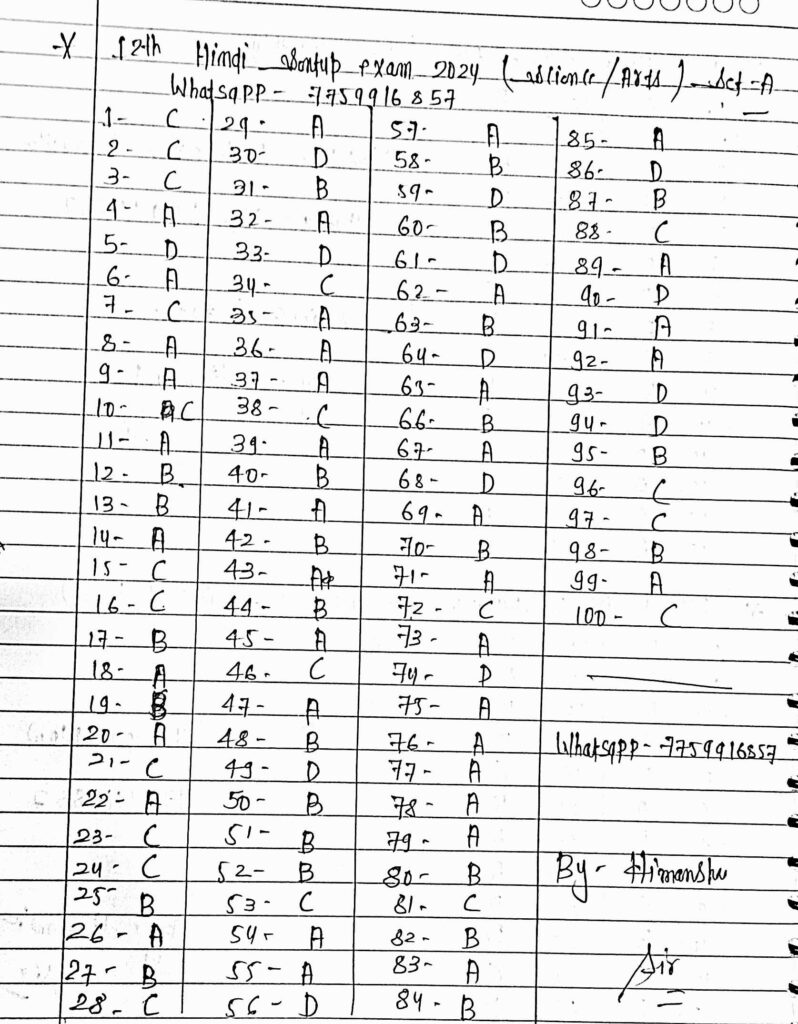 12th Hindi sentup exam 2024 (Science/Arts) Set-A
Whatsapp - 7759916857
1- C
2- C
3- C
4- A
5- D
6- A
7- C
8- A
9- A
10- C
11- A
12- B
13- B
14- A
15- C
16- C
17- B
18- A
19- B
20- A
21- C
22- A
23- C
24- C
25- B
26- A
27- B
28- C
29- A
30- D
31- B
32- A
33- D
34- C
35- A
36- A
37- A
38- C
39- A
40- B
41- A
42- B
43- A
44- B
45- A
46- C
47- A
48- B
49- D
50- B
51- B
52- B
53- C
54- A
55- A
56- D
57- A
58- B
59- D
60- B
61- D
62- A
63- B
64- D
65- A
66- B
67- A
68- D
69- A
70- B
71- A
72- C
73- A
74- D
75- A
76- A
77- A
78- A
79- A
80- B
81- C
82- B
83- A
84- B
85- A
86- D
87- B
88- C
89- A
90- D
91- A
92- A
93- D
94- D
95- B
96- C
97- C
98- B
99- A
100- C
Whatsapp - 7759916857
By- Himanshu
Sir